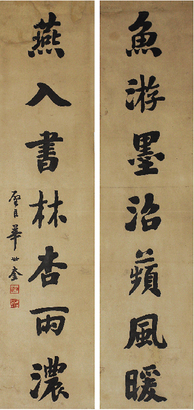 魚游墨沼蘋風暖
燕入書林杏雨濃
聖臣華世奎